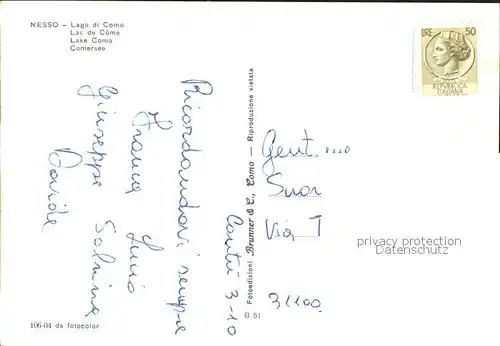 NESSO – Lago di Como
Lac de Côme
Lake Como
Comersee
LIRE 50
REPVBBLICA
ITALIANA
Ricordandovi sempre
Franca Lucio
Giuseppe Salvina
Davide
Cantù 3-10
Fotoedizioni Brunner & C., Como – Riproduzione vietata
B 51
Gent.mo
Suor
Via T
31100
privacy protection
Datenschutz
106-04 da fotocolor